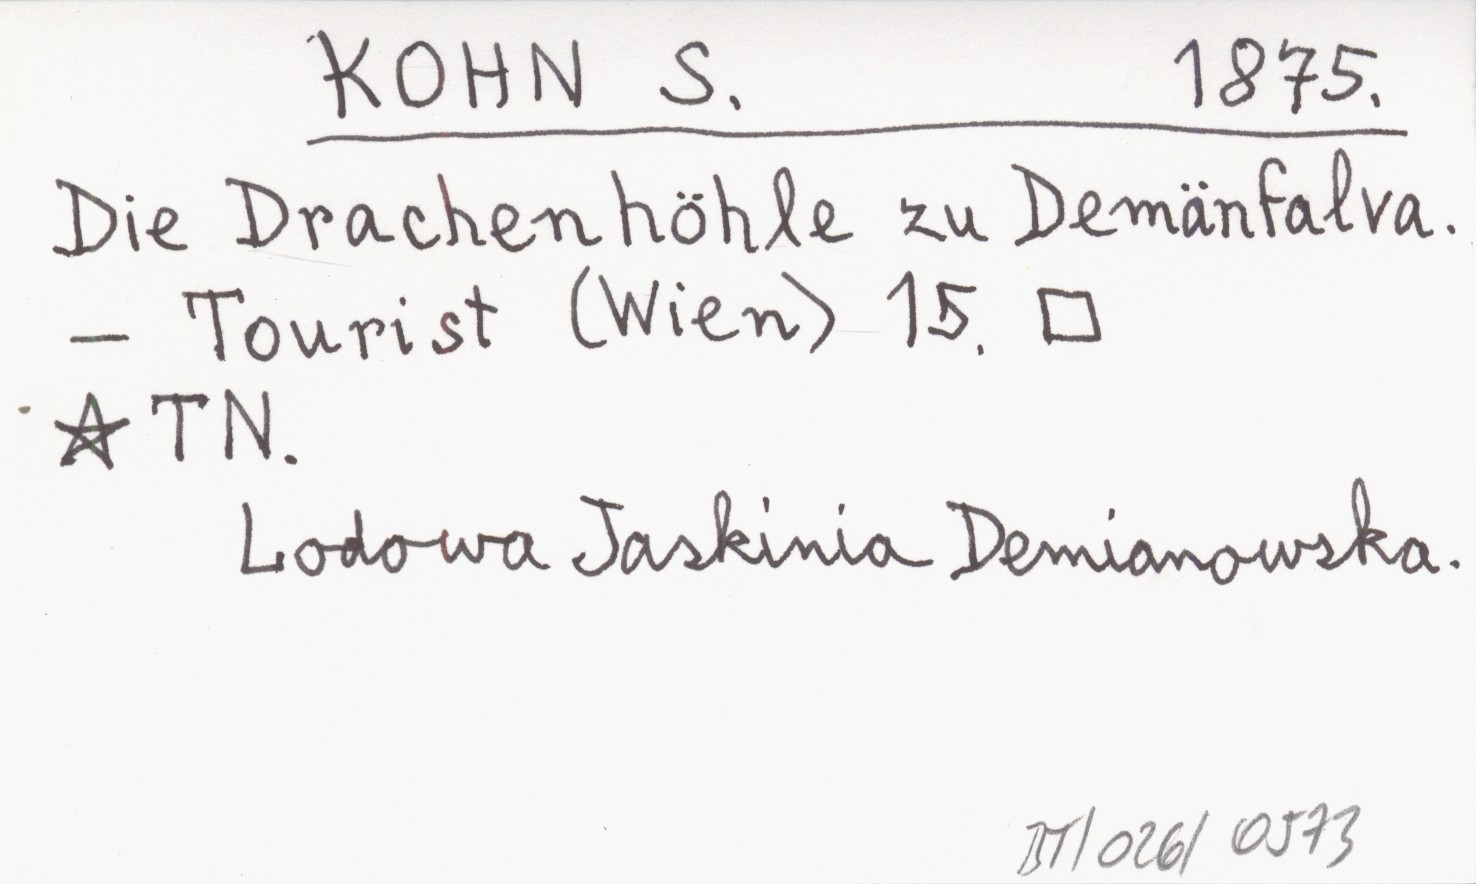 KOHN S. 1875.
Die Drachenhöhle zu Demänfalva.
– Tourist (Wien) 15. □
☆ TN.
Lodowa Jaskinia Demianowska.
BT/026/0573